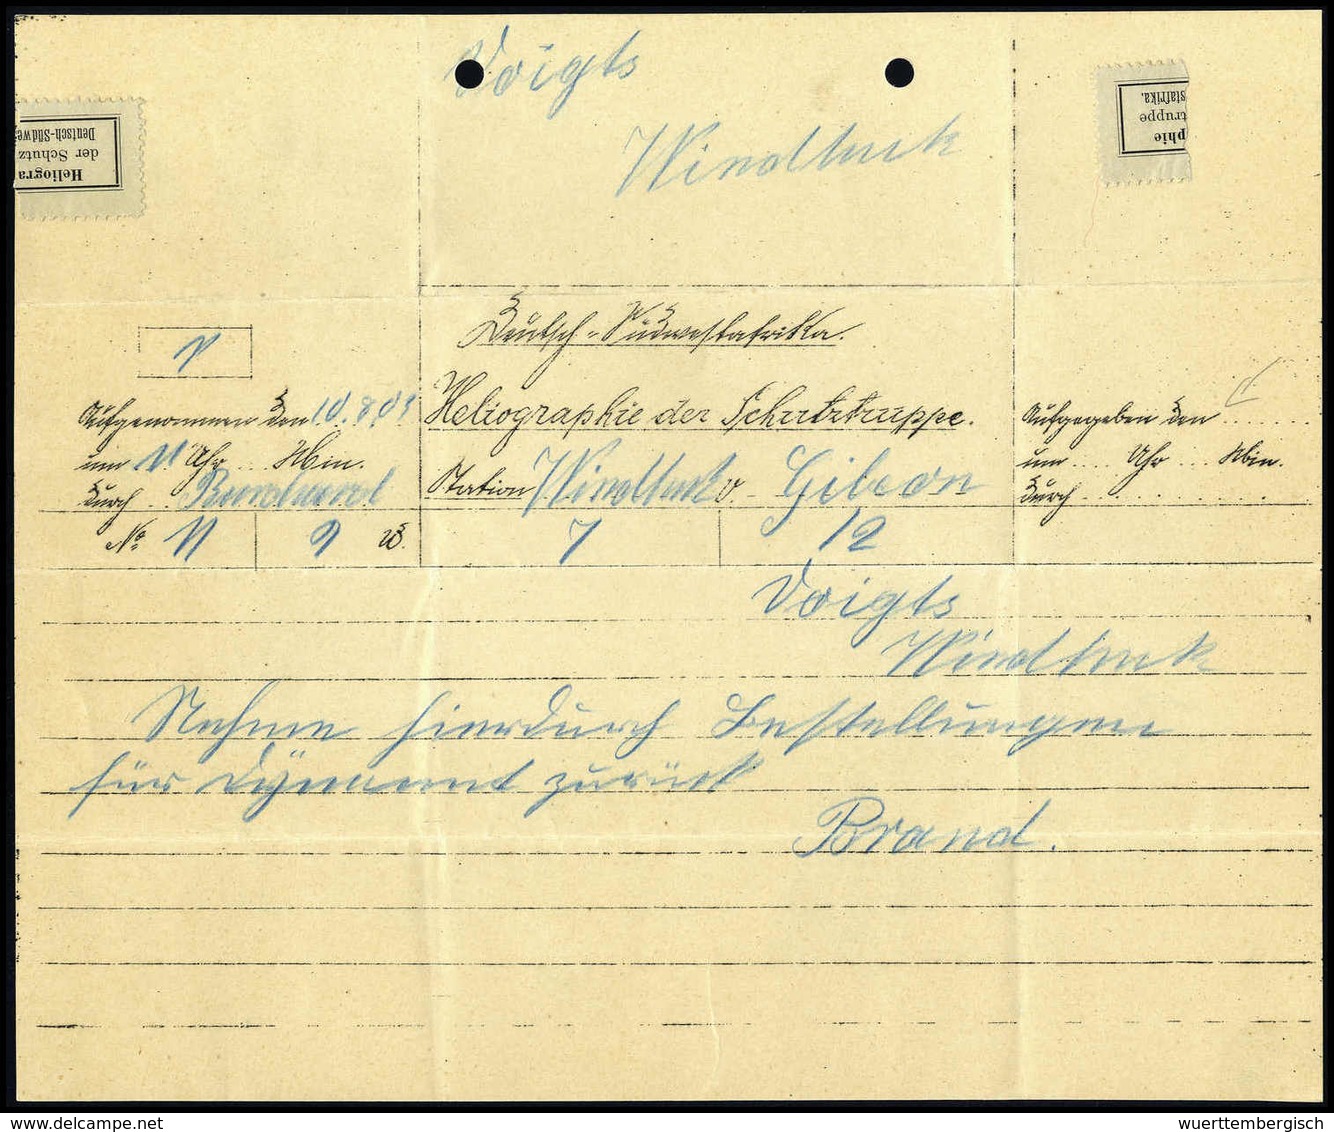 Voigts
Windhuk
Heliogra
der Schutz
Deutsch-Südwe
phie
truppe
stafrika.
Deutsch-Südwestafrika.
Heliographie der Schutztruppe.
Aufgenommen den 10.8.01
um 11 Uhr ... Min.
durch
Station Windhuk v. Gibeon
Aufgegeben den ........
um .... Uhr .... Min.
durch ..............
No. 11 9 W. 7 12
Voigts
Windhuk
Nehme hierdurch Bestellungen
für Dynamit zurück
Brand.
wuerttembergisch